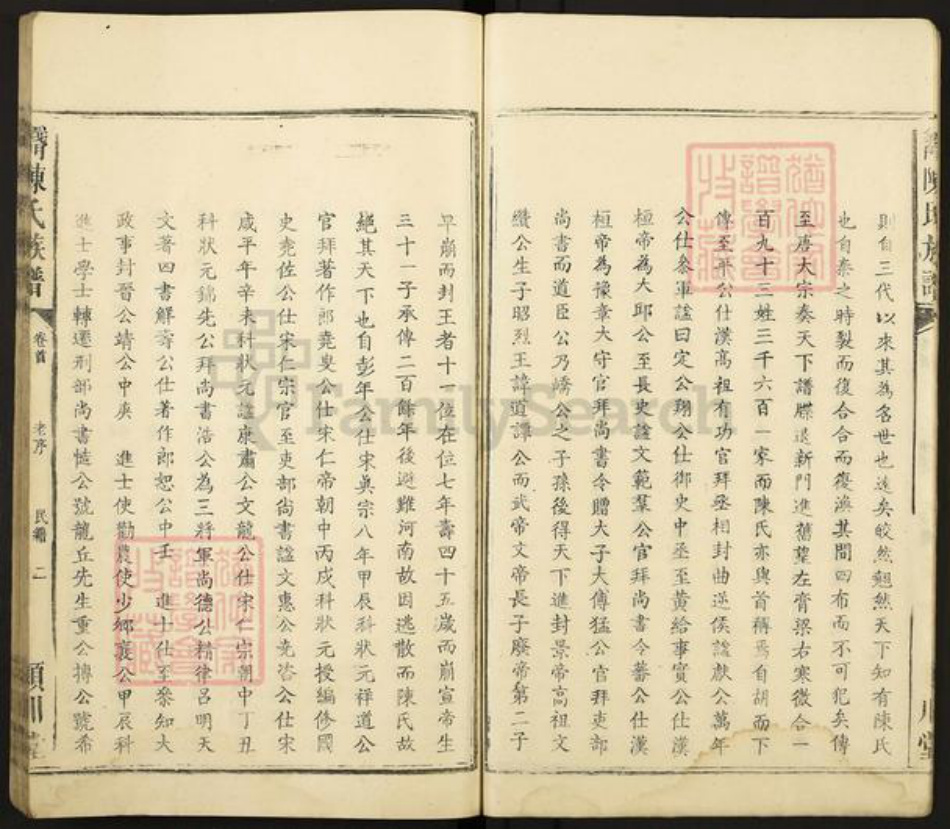 則自三代以來其為名世也遠矣皎然魁然天下知有陳氏
也自秦之時裂而復合合而復渙其間四布而不可犯矣傳
至唐太宗奏天下譜牒退新門進舊望左膏梁右寒微合一
百九十三姓三千六百一家而陳氏亦與首稱焉自胡而下
傳至平公仕漢高祖有功官拜丞相封曲逆侯諡獻公萬年
公仕叅軍諡曰定公翔公仕御史中丞至黃給事實公仕漢
桓帝為大邱公至長史諡文範羣公官拜尚書令蕃公仕漢
桓帝為豫章大守官拜尚書令贈大子大傅猛公官拜吏部
尚書而道臣公乃嶠公之子孫後得天下進封景帝高祖文
纘公生子昭烈王諱道譚公而武帝文帝長子廢帝第二子
早崩而封王者十一位在位七年壽四十五歲而崩宣帝生
三十一子承傳二百餘年後避難河南故因逃散而陳氏故
絕其天下也自彭年公仕宋真宗八年甲辰科狀元祥道公
官拜著作郎堯叟公仕宋仁帝朝中丙戌科狀元授編修國
史堯佐公仕宋仁宗官至吏部尚書諡文惠公堯咨公仕宋
咸平年辛未科狀元諡康肅公文龍公仕宋仁宗朝中丁丑
科狀元錦先公拜尚書浩公為三將軍尚德公精律呂明天
文著四書解壽公仕著作郎恕公中壬 進士仕至叅知大
政事封晉公靖公中庚 進士使勸農使少鄉襄公甲辰科
進士學士轉遷刑部尚書慥公號龍丘先生重公摶公號希
陳氏族譜
卷首
老序
民籍
二
川堂
FamilySearch